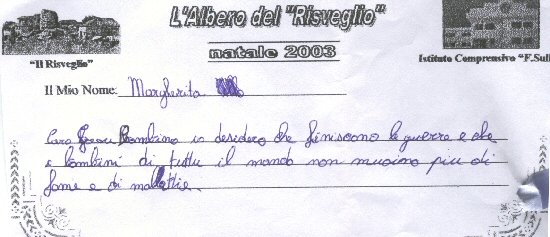 L'Albero del "Risveglio"
natale 2003
"Il Risveglio"
Istituto Comprensivo "F.Sull
Il Mio Nome: Margherita
Caro Gesù Bambino io desidero che finiscono le guerre e che
i bambini di tutto il mondo non muoiono più di
fame e di malattie.